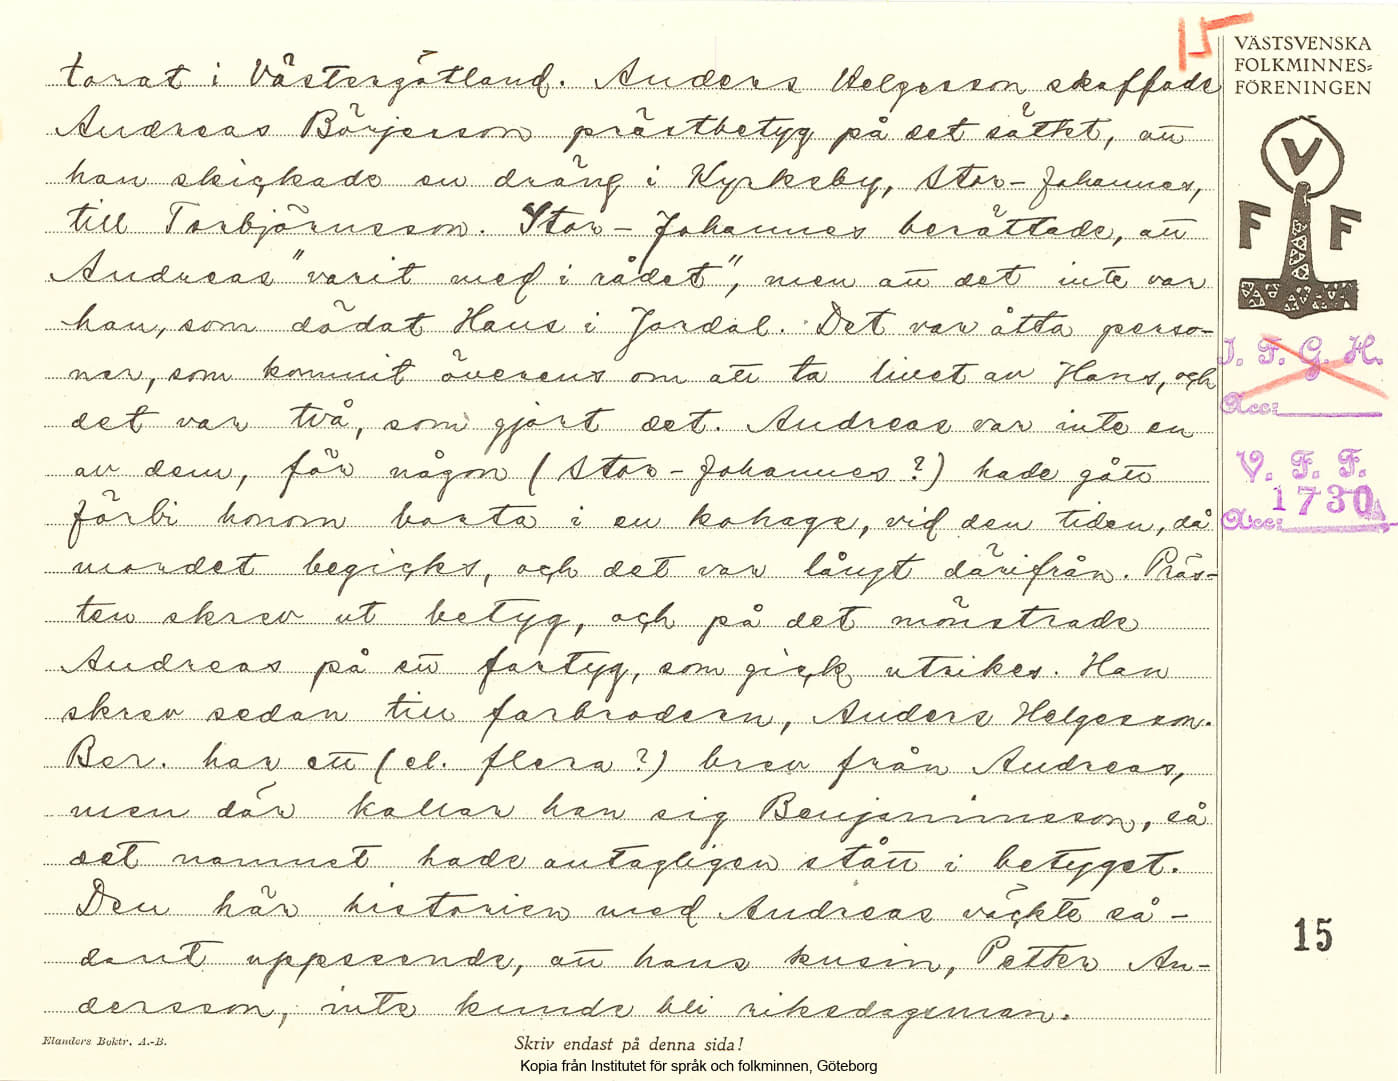 15
VÄSTSVENSKA
FOLKMINNES-
FÖRENINGEN
torat i Västergötland. Anders Helgesson skaffade
Andreas Börjesson prästbetyg på det sättet, att
han skickade en dräng i Kyrkeby, Stor-Johannes,
till Torbjörnsson. Stor-Johannes berättade, att
Andreas "varit med i rådet", men att det inte var
han, som dödat Hans i Jordal. Det var åtta perso-
ner, som kommit överens om att ta livet av Hans, och
det var två, som gjort det. Andreas var inte en
av dem, för någon (Stor-Johannes?) hade gått
förbi honom borta i en kohage, vid den tiden, då
mordet begicks, och det var långt därifrån. Präs-
ten skrev ut betyg, och på det mönstrade
Andreas på ett fartyg, som gick utrikes. Han
skrev sedan till farbrodern, Anders Helgesson.
Ber. har ett (el. flera?) brev från Andreas,
men där kallar han sig Benjaminsson, så
det namnet hade antagligen stått i betyget.
Den här historien med Andreas väckte så-
dant uppseende, att hans kusin, Petter An-
dersson, inte kunde bli riksdagsman.
V
F F
I. F. G. H.
Acc:
V. F. F.
Acc: 1730
15
Elanders Boktr. A.-B.
Skriv endast på denna sida!
Kopia från Institutet för språk och folkminnen, Göteborg